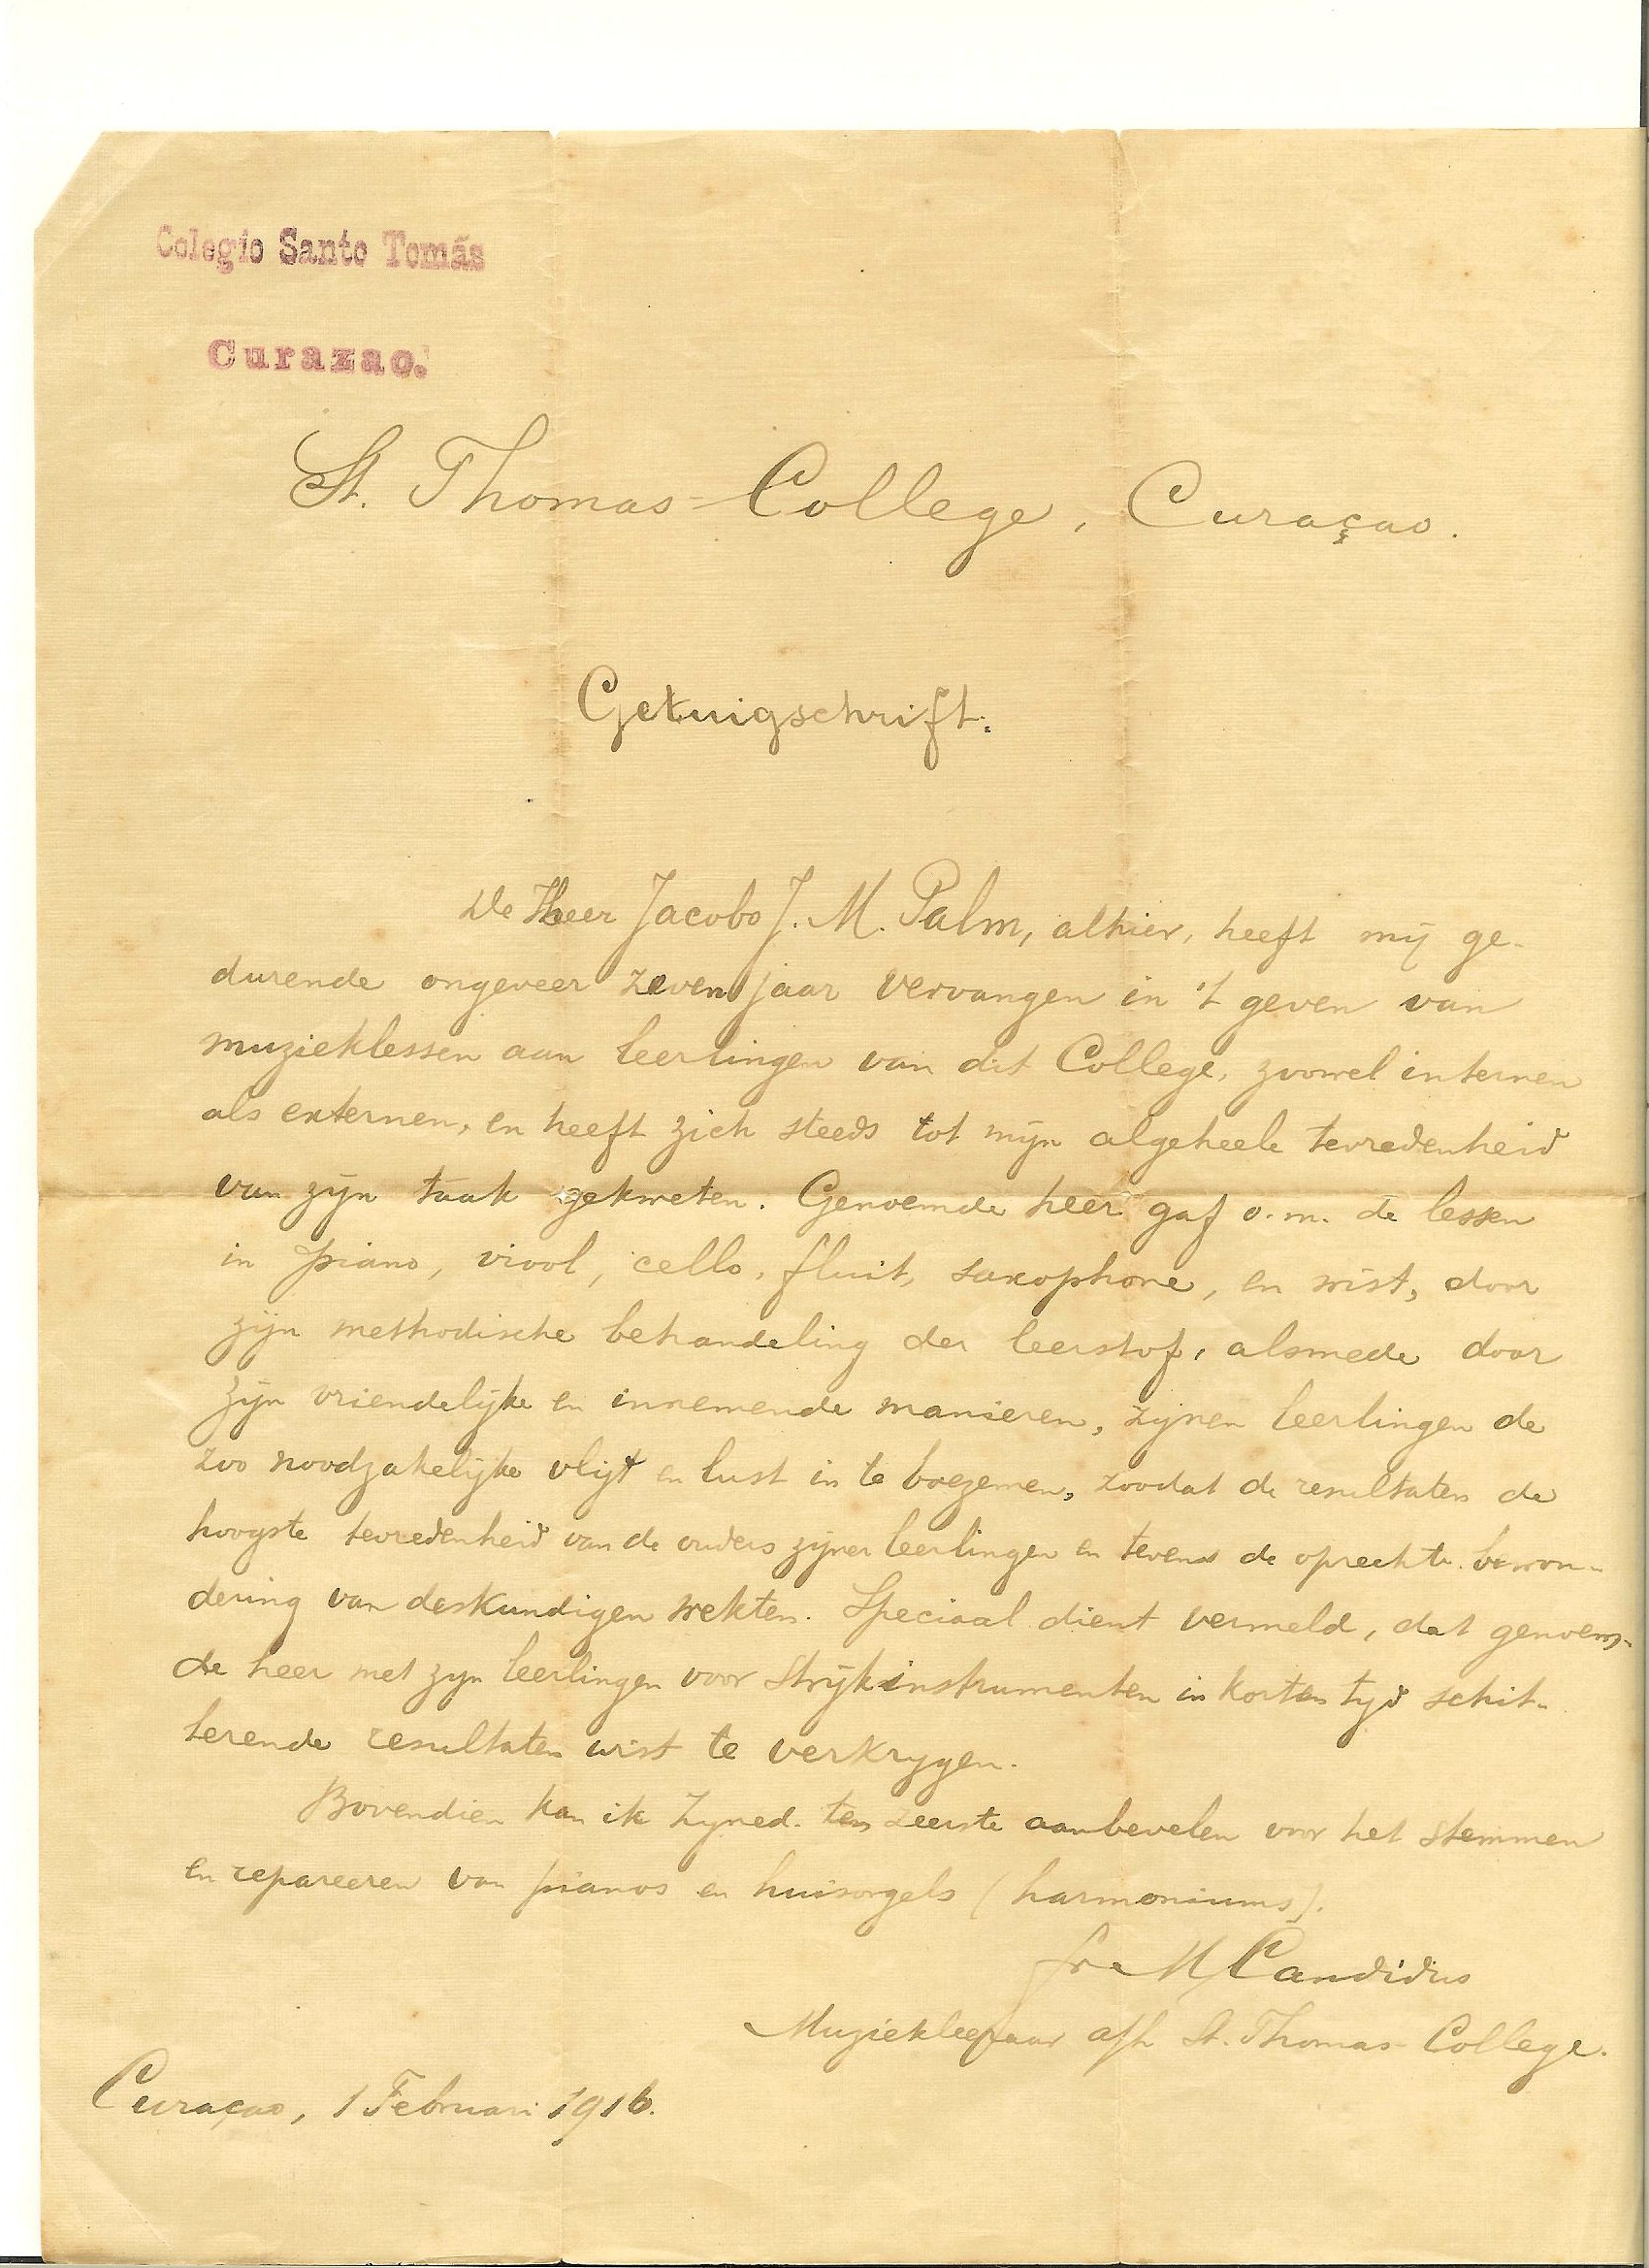 Colegio Santo Tomás
Curazao.
St. Thomas-College, Curaçao.
Getuigschrift.
De Heer Jacobo J. M. Palm, alhier, heeft mij ge-
durende ongeveer zeven jaar vervangen in 't geven van
muzieklessen aan leerlingen van dit College, zoowel internen
als externen, en heeft zich steeds tot mijn algeheele tevredenheid
van zijn taak gekweten. Genoemde heer gaf o.m. de lessen
in piano, viool, cello, fluit, saxophone, en wist, door
zijn methodische behandeling der leerstof, alsmede door
zijn vriendelijke en innemende manieren, zijnen leerlingen de
zoo noodzakelijke vlijt en lust in te boezemen, zoodat de resultaten de
hoogste tevredenheid van de ouders zijner leerlingen en tevens de oprechte bewon-
dering van deskundigen wekten. Speciaal dient vermeld, dat genoem-
de heer met zijn leerlingen voor strijkinstrumenten in korten tijd schit-
terende resultaten wist te verkrijgen.
Bovendien kan ik Zijned. ten zeerste aanbevelen voor het stemmen
en repareeren van pianos en huisorgels (harmoniums).
fr. M. Candidus
Muziekleeraar a/h St. Thomas-College.
Curaçao, 1 Februari 1916.